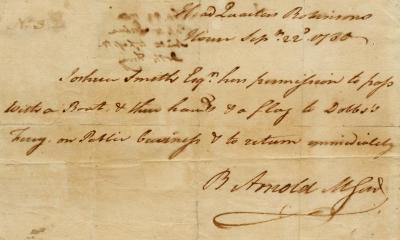 No. 3
Head Quarters Robinsons
House Sepr. 22d 1780
Joshua Smith Esqr. has permission to pass
with a Boat & three hands & a flag to Dobbs's
Ferry on Public business & to return immediately
B Arnold M Genl